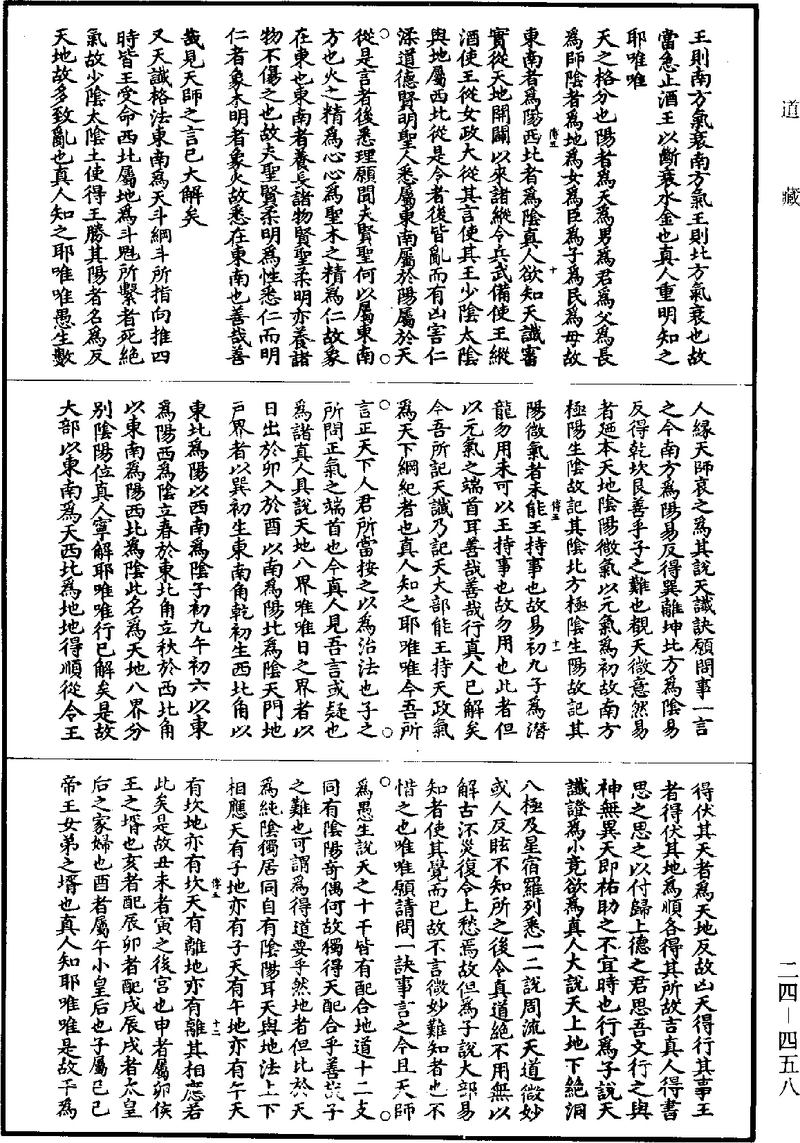 道藏
王則南方氣衰南方氣王則北方氣衰也故
當急止酒王以斷衰水金也真人重明知之
耶唯唯
天之格分也陽者為天為男為君為父為長
為師陰者為地為女為臣為子為民為母故
東南者為陽西北者為陰真人欲知天讖審
實從天地開闢以來諸縱令兵武備使王縱
酒使王從女政大從其言使其王少陰太陰
與地屬西北從是令者後皆亂而有凶害仁
渘道德賢明聖人悉屬東南屬於陽屬於天
從是言者後悉理願聞夫賢聖何以屬東南
方也火之精為心心為聖木之精為仁故象
在東也東南者養長諸物賢聖柔明亦養諸
物不傷之也故夫聖賢柔明為性悉仁而明
仁者象木明者象火故悉在東南也善哉善
哉見天師之言已大解矣
又天讖格法東南為天斗綱斗所指向推四
時皆王受命西北屬地為斗魁所繫者死絕
氣故少陰太陰土使得王勝其陽者名為反
天地故多致亂也真人知之耶唯唯愚生數
人緣天師哀之為其說天讖訣願問事一言
之今南方為陽易反得巽離坤北方為陰易
反得乾坎艮善乎子之難也覩天微意然易
者廼本天地陰陽微氣以元氣為初故南方
極陽生陰故記其陰北方極陰生陽故記其
陽微氣者未能王持事也故易初九子為潛
龍勿用未可以王持事也故勿用也此者但
以元氣之端首耳善哉善哉行真人已解矣
今吾所記天讖乃記天大部能王持天政氣
為天下綱紀者也真人知之耶唯唯今吾所
言正天下人君所當按之以為治法也子之
所問正氣之端首也今真人見吾言或疑也
為諸真人具說天地八界唯唯日之界者以
日出於卯入於酉以南為陽北為陰天門地
戶界者以巽初生東南角乾初生西北角以
東北為陽以西南為陰子初九午初六以東
為陽西為陰立春於東北角立秋於西北角
以東南為陽西北為陰此名為天地八界分
別陰陽位真人寧解耶唯唯行已解矣是故
大部以東南為天西北為地地得順從令王
得伏其天者為天地反故凶天得行其事王
者得伏其地為順各得其所故吉真人得書
思之思之以付歸上德之君思吾文行之與
神無異天即祐助之不宜時也行為子說天
讖證為小竟欲為真人大說天上地下絕洞
八極及星宿羅列悉一二說周流天道微妙
或人反眩不知所之後令真道絕不用無以
解古汚災復令上愁焉故但為子說大部易
知者使其覺而已故不言微妙難知者也不
惜之也唯唯願請問一訣事言之今且天師
為愚生說天之十干皆有配合地道十二支
同有陰陽奇偶何故獨得天配合乎善哉子
之難也可謂為得道要乎然地者但比於天
為純陰獨居同自有陰陽耳天與地法上下
相應天有子地亦有子天有午地亦有午天
有坎地亦有坎天有離地亦有離其相應若
此矣是故丑未者寅之後宮也申者屬卯侯
王之壻也亥者配辰卯者配戌辰戌者太皇
后之家婦也酉者屬午小皇后也子屬己己
帝王女弟之壻也真人知耶唯唯是故干為
傅五
十
傅五
十一
傅五
十二
二四-四五八